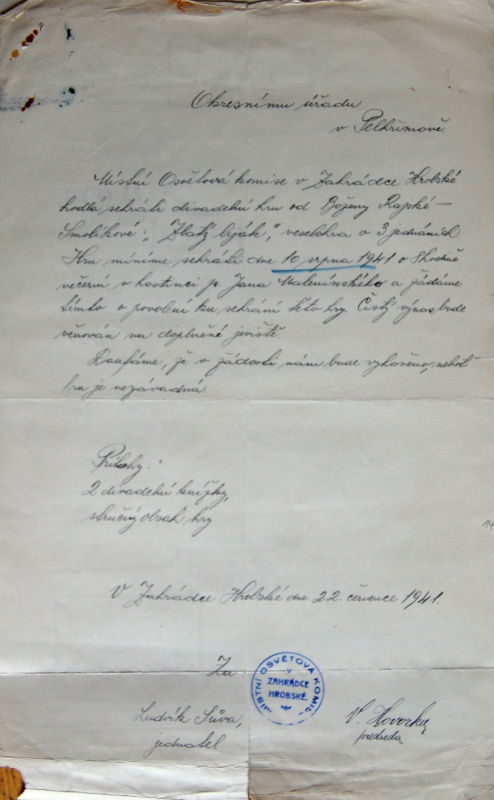 Okresnímu úřadu
v Pelhřimově.
Místní Osvětová komise v Zahrádce Hrobské
hodlá sehráti divadelní hru od Boženy Rajské-
Smolíkové: „Zlatý
veselohra o 3 jednáních
Hru míníme sehráti dne 10. srpna 1941 o 8 hodině
večerní v hostinci p. Jana a žádáme
tímto o povolení ku sehrání této hry. Čistý výnos bude
věnován na doplnění jeviště.
Doufáme, že v žádosti nám bude vyhověno, neboť
hra je nezávadná.
Přílohy:
2 divadelní knížky,
stručný obsah hry
V Zahrádce Hrobské dne 22. července 1941.
Za
MÍSTNÍ OSVĚTOVÁ KOMISE
V
ZAHRÁDCE
HROBSKÉ
Ludvík Sůva,
jednatel
V. Hovorka
předseda